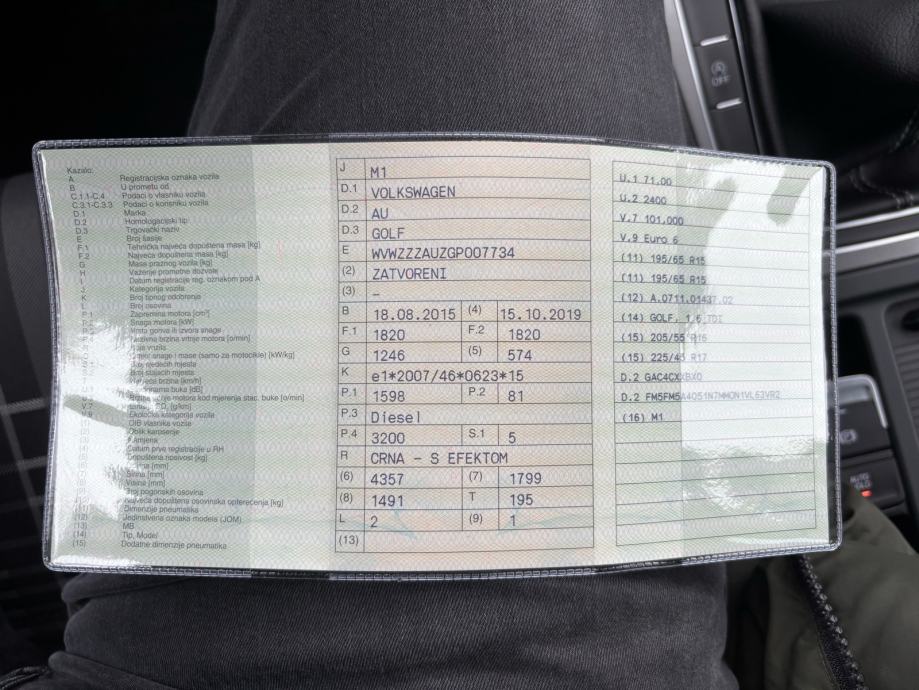 Kazalo:
A Registracijska oznaka vozila
B U prometu od
C.1.1-C.4 Podaci o vlasniku vozila
C.3.1-C.3.3 Podaci o korisniku vozila
D.1 Marka
D.2 Homologacijski tip
D.3 Trgovački naziv
E Broj šasije
F.1 Tehnička najveća dopuštena masa [kg]
F.2 Najveća dopuštena masa [kg]
G Masa praznog vozila [kg]
H Važenje prometne dozvole
I Datum registracije reg. oznakom pod A
J Kategorija vozila
K Broj tipnog odobrenja
L Broj osovina
Zapremina motora [cm³]
Snaga motora [kW]
Vrsta goriva ili izvora snage
Nazivna brzina vrtnje motora [o/min]
Omjer snage i mase (samo za motocikle) [kW/kg]
Broj sjedećih mjesta
Broj stajaćih mjesta
Najveća brzina [km/h]
buka [dB]
motora kod mjerenja stac. buke [o/min]
[g/km]
Ekološka kategorija vozila
OIB vlasnika vozila
Oblik karoserije
Namjena
Datum prve registracije u RH
Dopuštena nosivost [kg]
[mm]
Širina [mm]
Visina [mm]
Broj pogonskih osovina
Najveća dopuštena osovinska opterećenja [kg]
Dimenzije pneumatika
(12) Jedinstvena oznaka modela (JOM)
(13) MB
(14) Tip, Model
(15) Dodatne dimenzije pneumatika
J M1
D.1 VOLKSWAGEN
D.2 AU
D.3 GOLF
E WVWZZZAUZGP007734
(2) ZATVORENI
(3) –
B 18.08.2015 (4) 15.10.2019
F.1 1820 F.2 1820
G 1246 (5) 574
K e1*2007/46*0623*15
P.1 1598 P.2 81
P.3 Diesel
P.4 3200 S.1 5
R CRNA - S EFEKTOM
(6) 4357 (7) 1799
(8) 1491 T 195
L 2 (9) 1
(13)
U.1 71.00
U.2 2400
V.7 101,000
V.9 Euro 6
(11) 195/65 R15
(11) 195/65 R15
(12) A.0711.01437.02
(14) GOLF, 1,6 TDI
(15) 205/55 R16
(15) 225/45 R17
D.2
D.2
(16) M1
OFF
AUTO